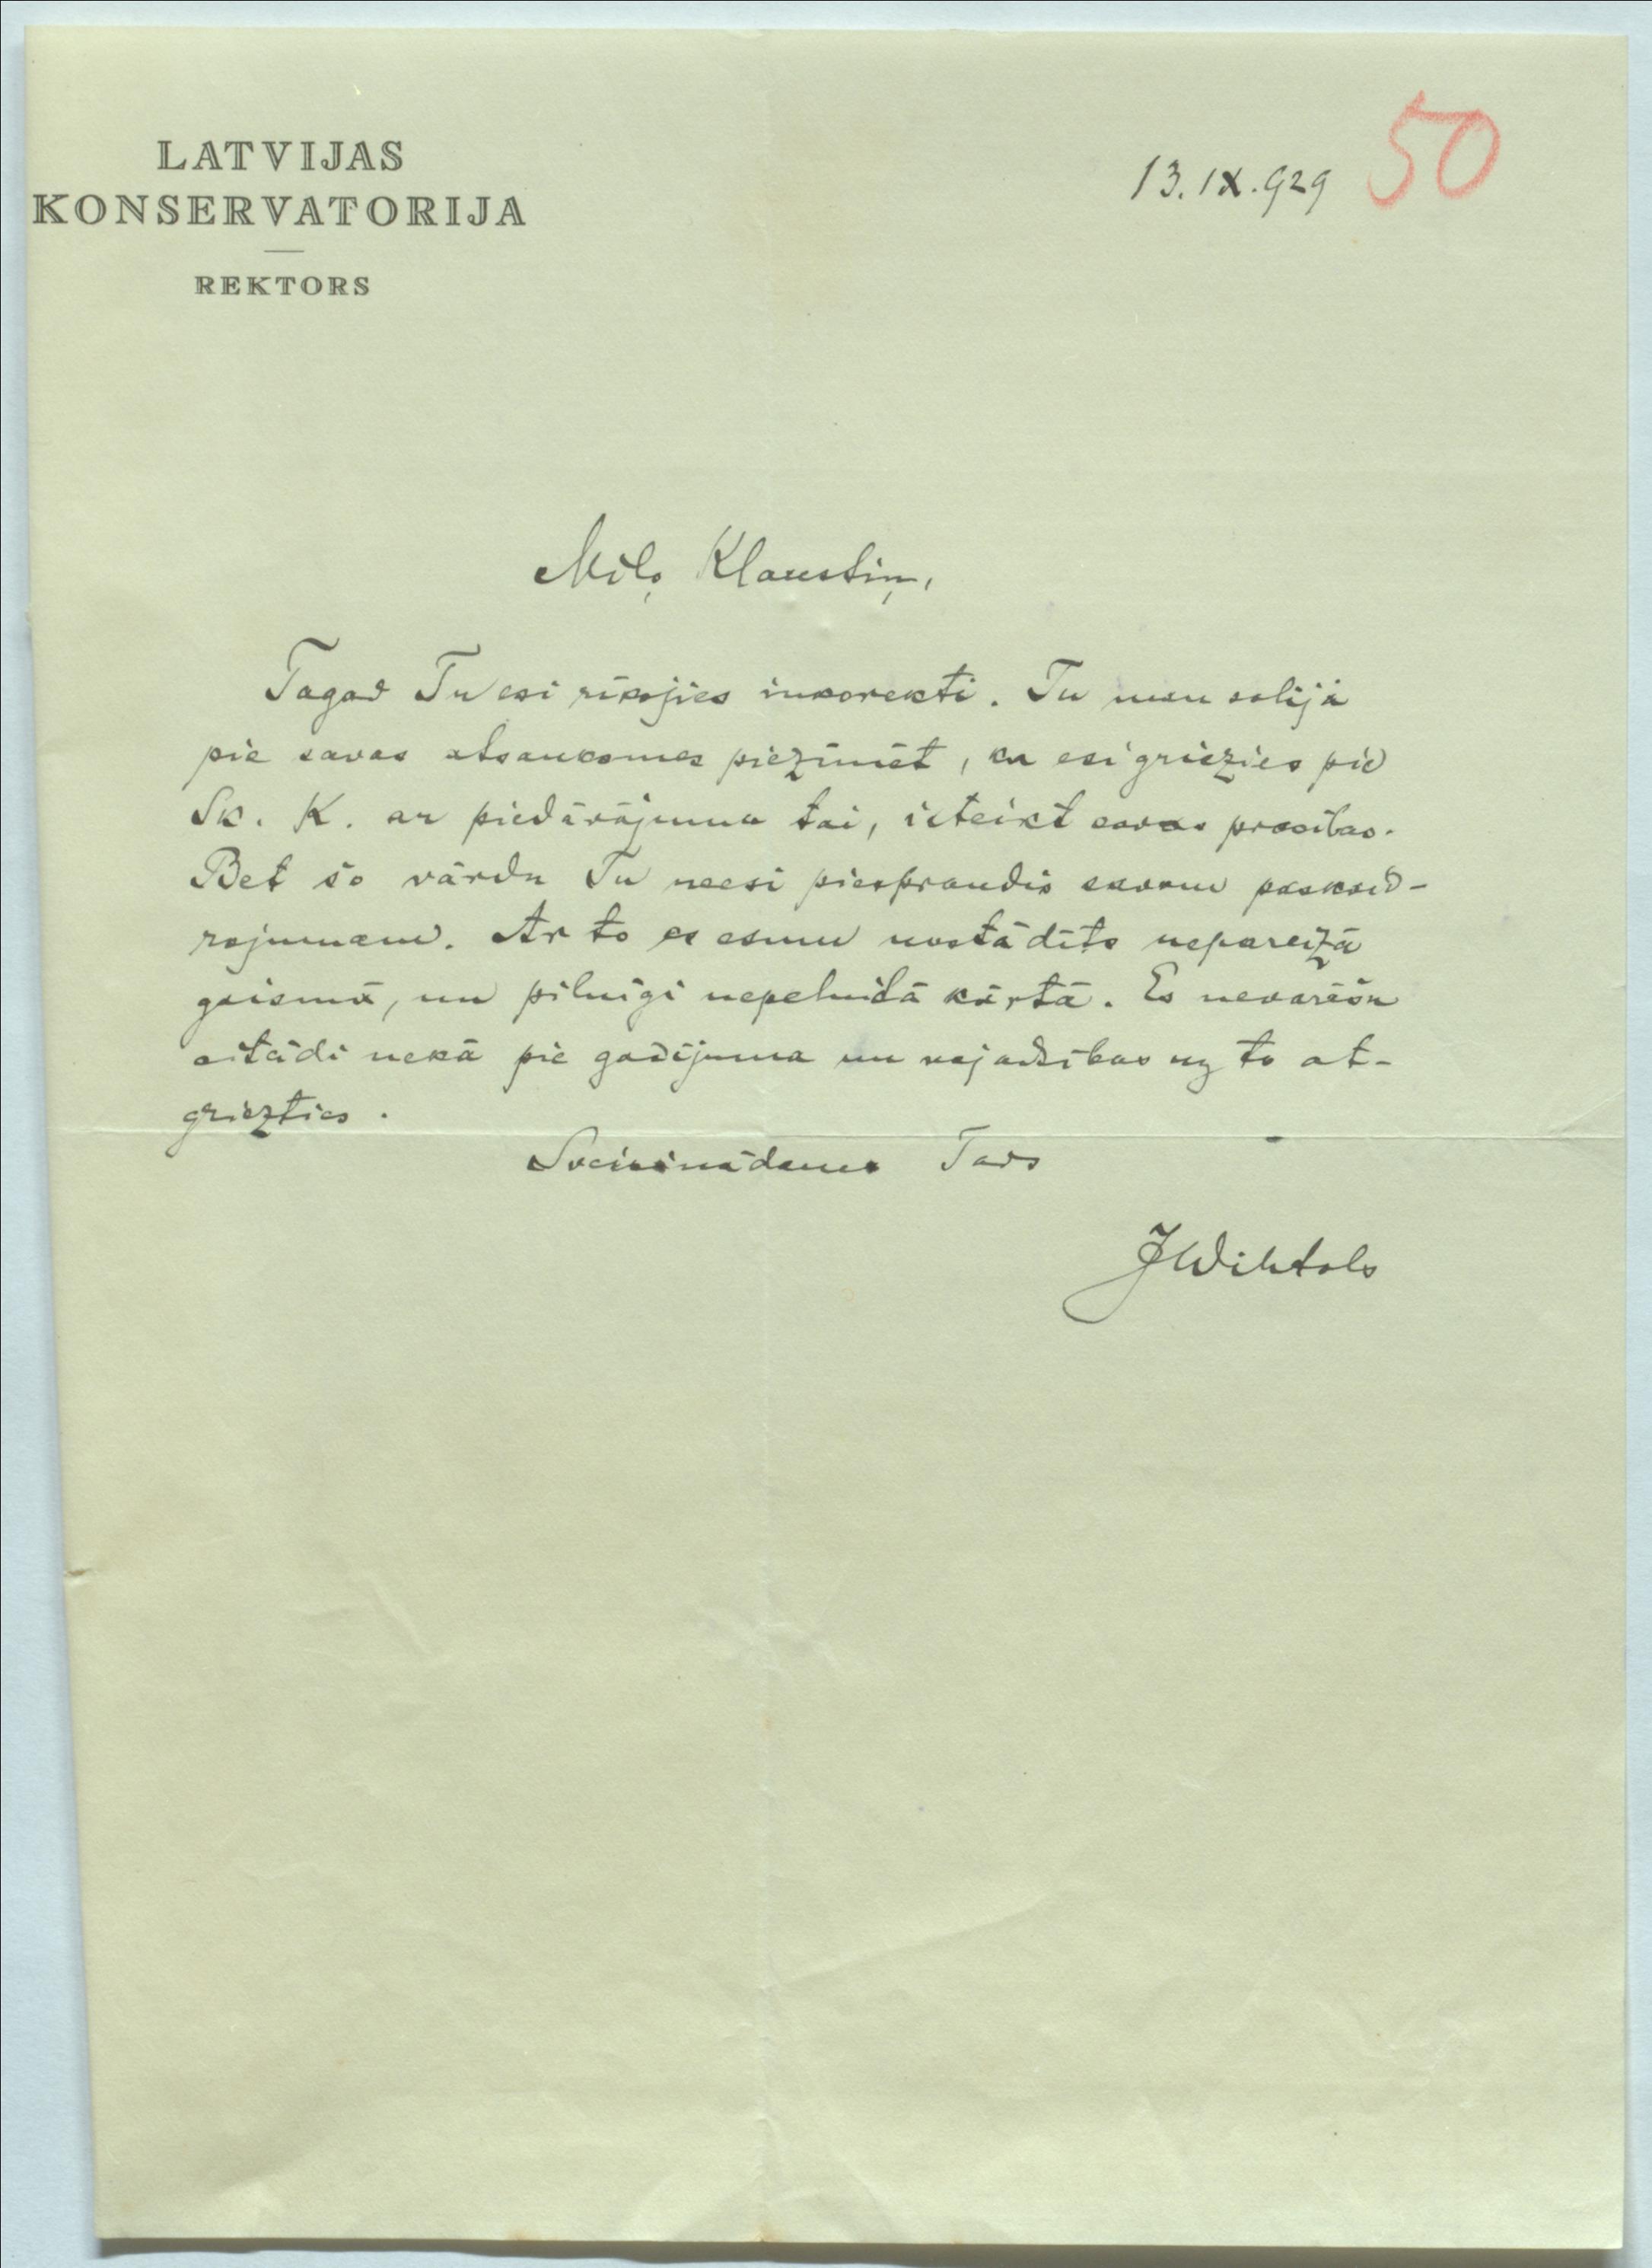 LATVIJAS
KONSERVATORIJA
REKTORS
13.IX.929
50
Mīļo Klaustiņ,
Tagad Tu esi rīkojies inkorekti. Tu man solīji
pie savas atsauksmes piezīmēt, ka esi griezies pie
Sk. K. ar piedāvājumu tai, izteikt savas prasības.
Bet šo vārdu Tu neesi piespraudis savam paskaid-
rojumam. Ar to es esmu nostādīts nepareizā
gaismā, un pilnīgi nepelnītā kārtā. Es nevarēšu
citādi nekā pie gadījuma un vajadzības uz to at-
griezties.
Sveicinādams Tavs
JWihtols